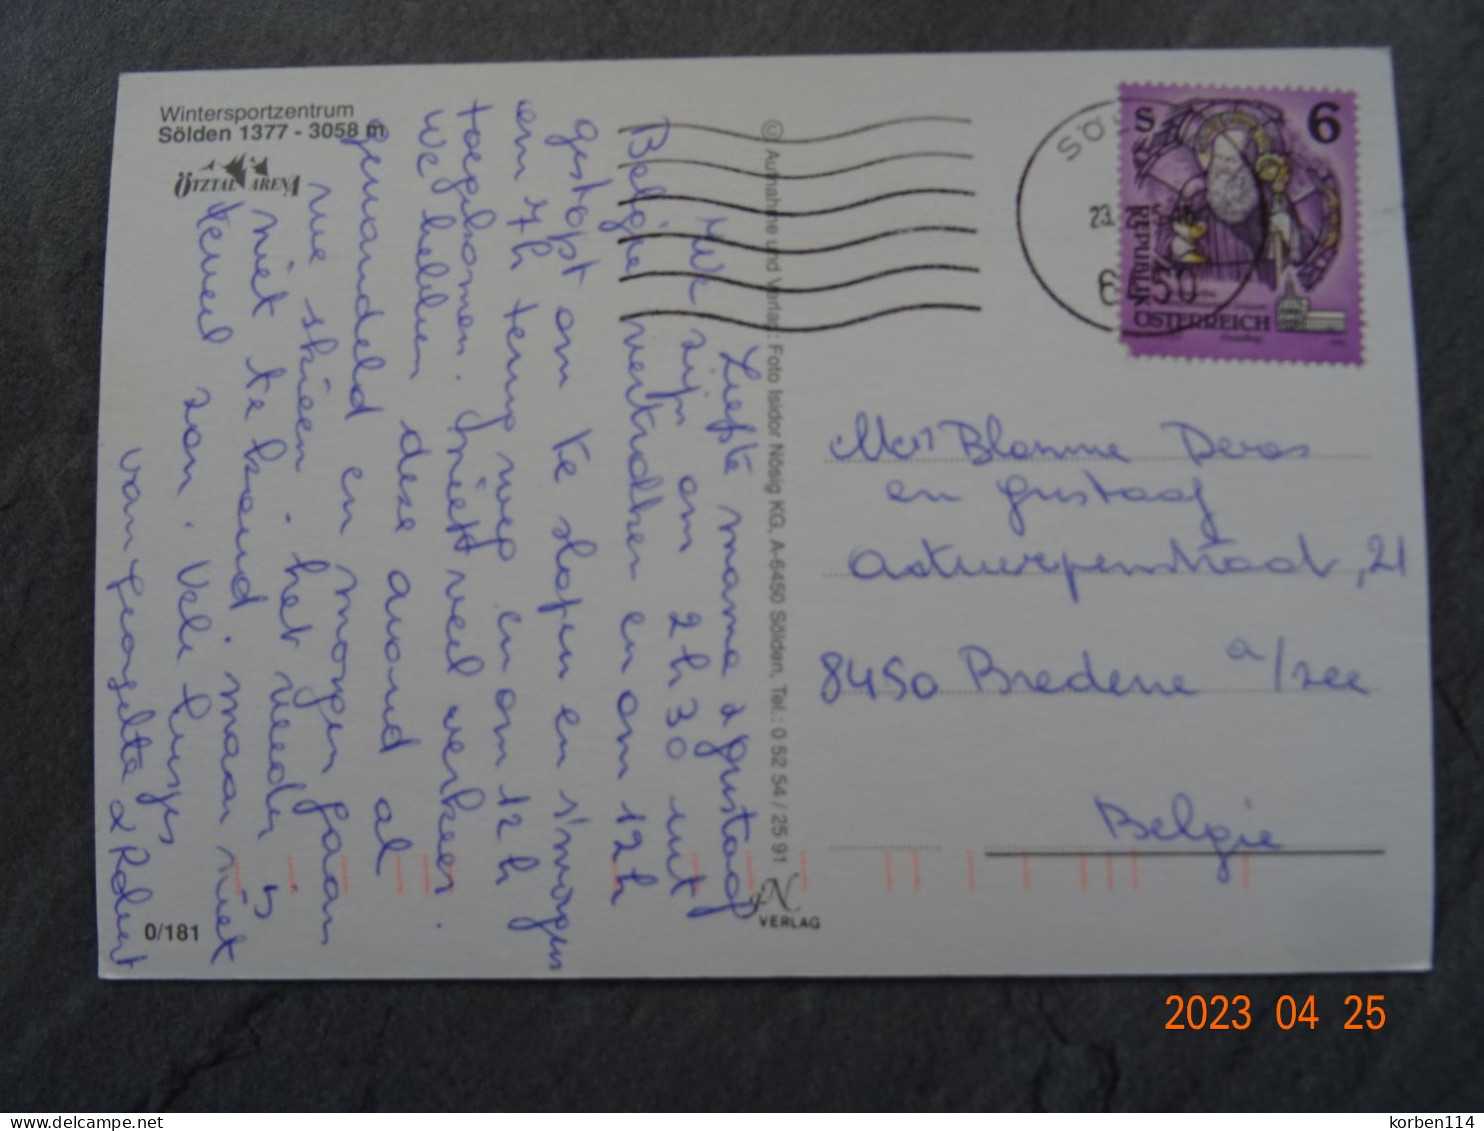 Wintersportzentrum
Sölden 1377 - 3058 m
ÖTZTAL ARENA
Liefste mama & Gustaaf
We zijn om 2h30 uit
België vertrokken en om 12h
gestopt om te slapen en s'morgens
om 7h terug weg en om 12h
toegekomen. Niet veel verkeer.
We hebben deze avond al
gewandeld en morgen gaan
we skieen. het weder is
niet te koud, maar niet
teveel zon. Vele kusjes
van Georgette & Robert
0/181
© Aufnahme und Verlag: Foto Isidor Nösig KG, A-6450 Sölden, Tel.: 0 52 54 / 25 91
VERLAG
S 6
REPUBLIK
ÖSTERREICH
6450
Blomme Deros
en Gustaaf
Antwerpenstraat, 21
8450 Bredene a/zee
België
2023 04 25
delcampe.net
korben114